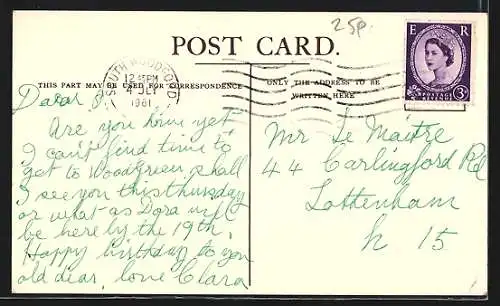 25p.
POST CARD.
THIS PART MAY BE USED FOR CORRESPONDENCE
ONLY THE ADDRESS TO BE
WRITTEN HERE
SOUTH WOODFORD
12 15PM
4 OCT
1961
E R
POSTAGE
REVENUE
3D
Dear
Are you home yet
I can't find time to
get to Woodgreen, shall
I see you this thursday
or what as Dora will
be here by the 19th,
Happy birthday to you
old dear, love Clara
Mr Le Maitre
44 Carlingford Rd
Tottenham
N 15